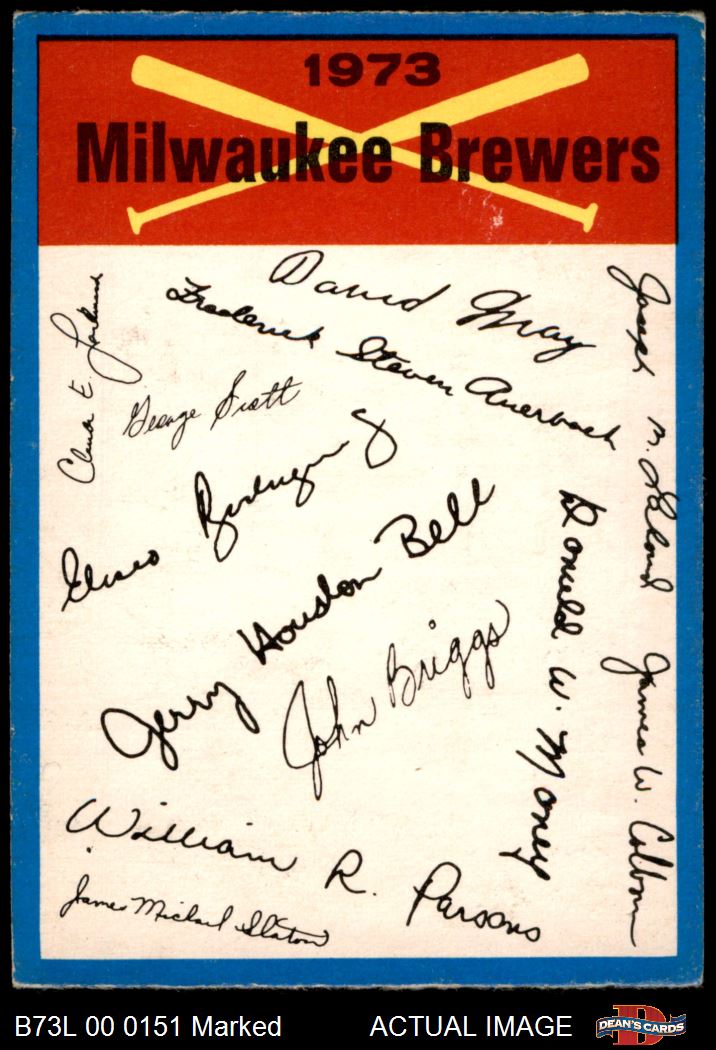 1973
Milwaukee Brewers
David May
Frederick Steven Auerbach
George Scott
Eliseo Rodriguez
Jerry Houston Bell
John Briggs
Donald W. Money
James W. Colborn
Joseph M.
William R. Parsons
James Michael Slaton
B73L 00 0151 Marked
ACTUAL IMAGE
D
DEAN'S CARDS